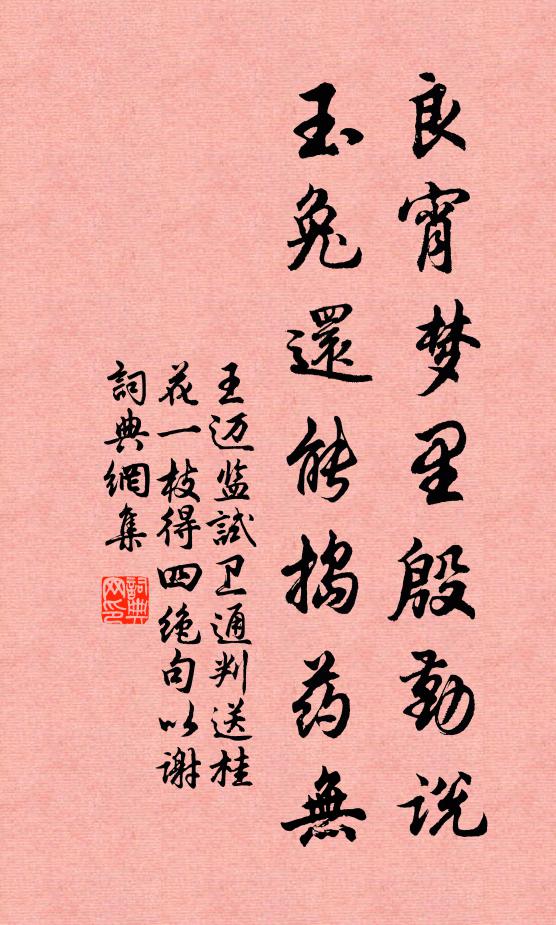 良宵梦里殷勤说
玉兔還能捣药無
王迈监試卫通判送桂
花一枝得四绝句以谢
詞典網集
詞典網印